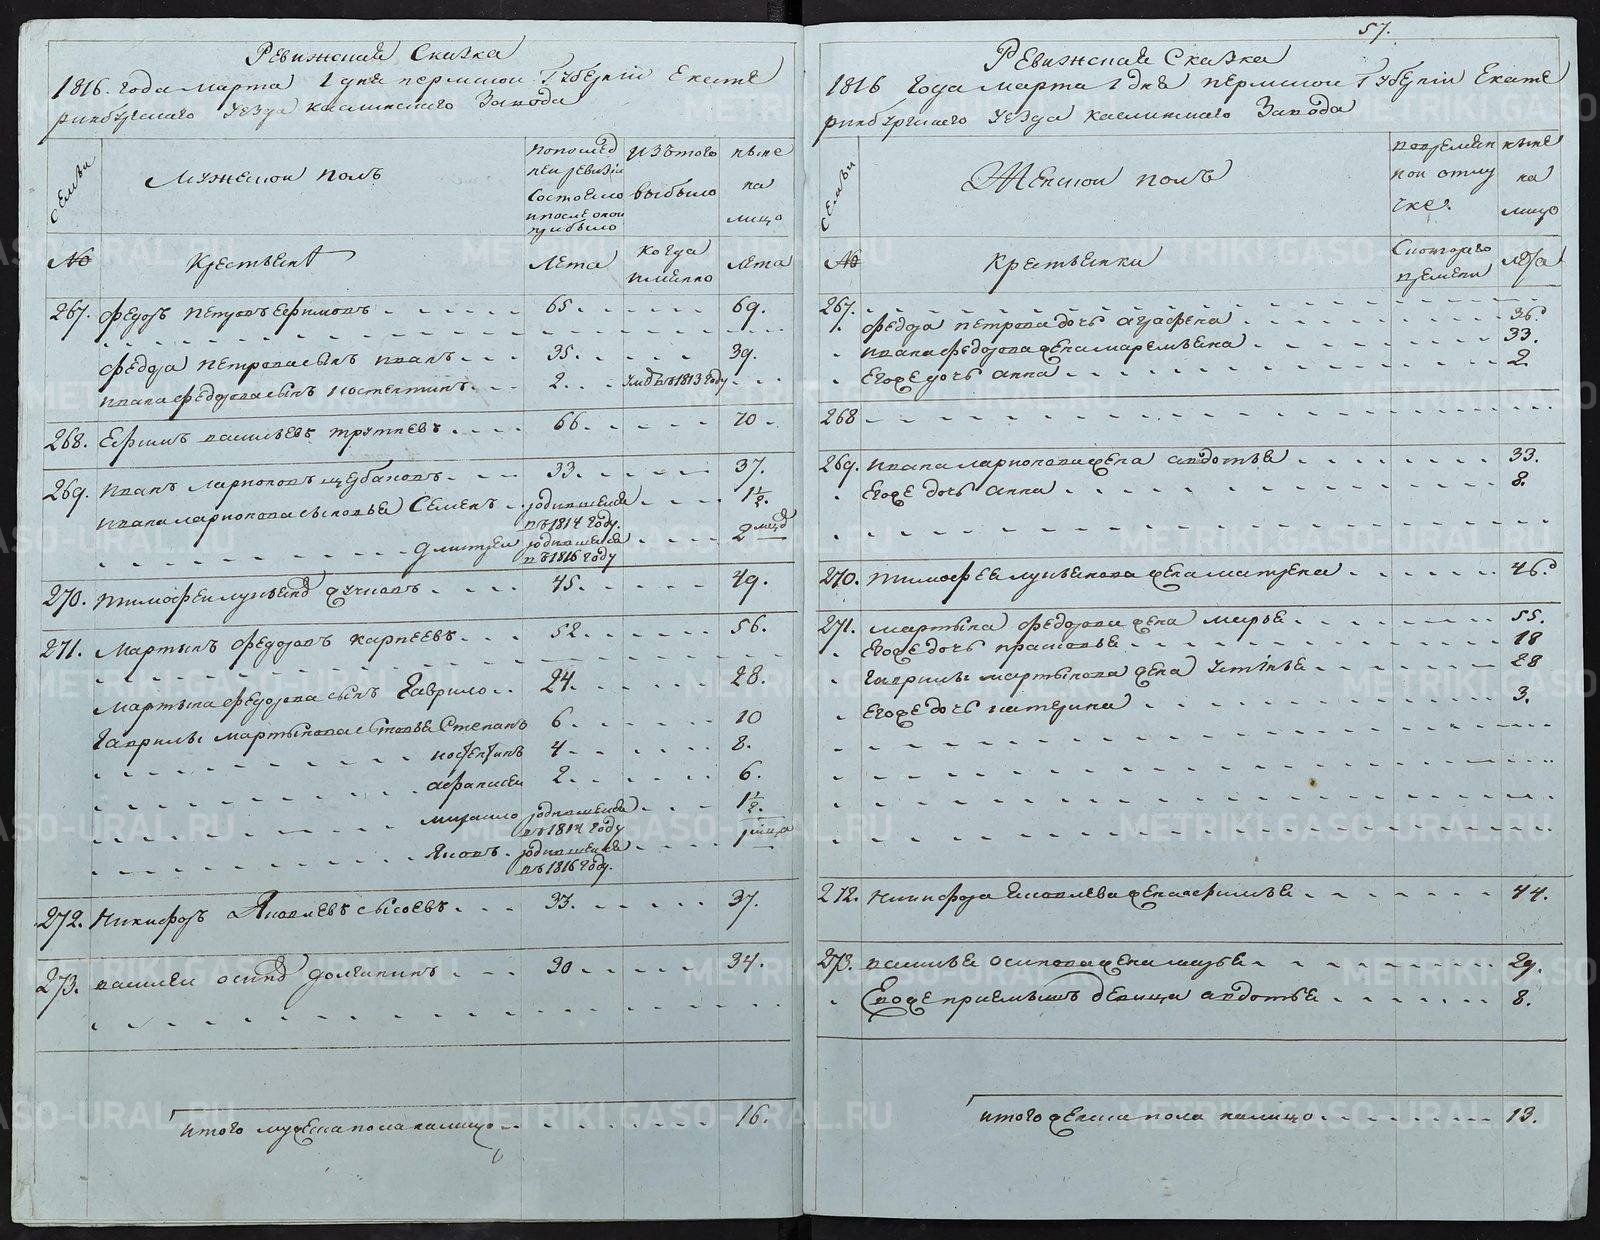 Ревижская Сказка
1816. года марта 1 дня пермской Губернiи Екате
ринбургскаго Уезда каслинскаго Завода
Семьи
Мужеской полъ
попослед
ней ревизiи
Состояло
и после оной
прибыло
изътого
выбыло
ныне
на
лицо
№
Крестьяня
Лета
когда
имянно
лета
267. Федоръ Петровъ Ефимовъ 65 69.
Федора Петрова сынъ иванъ 35. 39.
ивана федорова сынъ костентинъ 2. умръ въ 1813 году
268. Ефимъ васильевъ трутневъ 66 70
269. иванъ ларионовъ щербаковъ 33. 37.
ивана ларионова сыновья Семенъ родившейся въ 1814 году. 1 1/2.
дмитрей родившейся въ 1816 году 2 меца
270. тимофей лукъянъ 45. 49.
271. Мартынъ федоровъ карпеевъ 52. 56.
Мартына федорова сынъ Гаврило 24. 28.
Гаврилы мартынова сыновья Степанъ 6 10
костентинъ 4 8.
афанасей 2. 6.
михаило родившейся въ 1814 году 1 1/2.
Яковъ родившейся въ 1816 году. 1 меца
272. Никифоръ Яковлевъ сысоевъ 33. 37.
273. василей осипъ долганинъ 30 34.
итого мужеска пола налицо 16.
57.
Ревижская Сказка
1816 года марта 1 дня пермской Губернiи Екате
ринбургскаго Уезда каслинскаго Завода
Семьи
Женской полъ
повремян
ной отлу
чке.
ныне
на
лицо
№
крестьянки
Скотораго
времени
лета
267.
федора петрова дочь аграфена 36
ивана федорова жена маремьяна 33.
Егоже дочь анна 2
268
269. ивана ларионова жена авдотья 33.
Егоже дочь анна 8.
270. тимофея лукъянова жена матрена 46.
271. мартына федорова жена марья 55.
Егоже дочь прасковья 18
Гаврилы мартынова жена устинья 28
Егоже дочь катерина 3.
272. Никифора Яковлева жена афимья 44.
273. василья осипова жена марья 29.
Евоже приемышъ девица авдотья 8.
итого женска пола налицо 13.